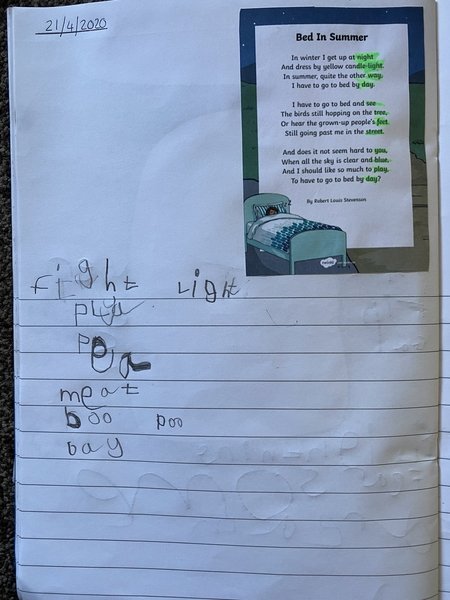 21/4/2020
Bed In Summer
In winter I get up at night
And dress by yellow candle-light.
In summer, quite the other way,
I have to go to bed by day.
I have to go to bed and see
The birds still hopping on the tree,
Or hear the grown-up people's feet
Still going past me in the street.
And does it not seem hard to you,
When all the sky is clear and blue,
And I should like so much to play,
To have to go to bed by day?
By Robert Louis Stevenson
fight light
meat
boo poo